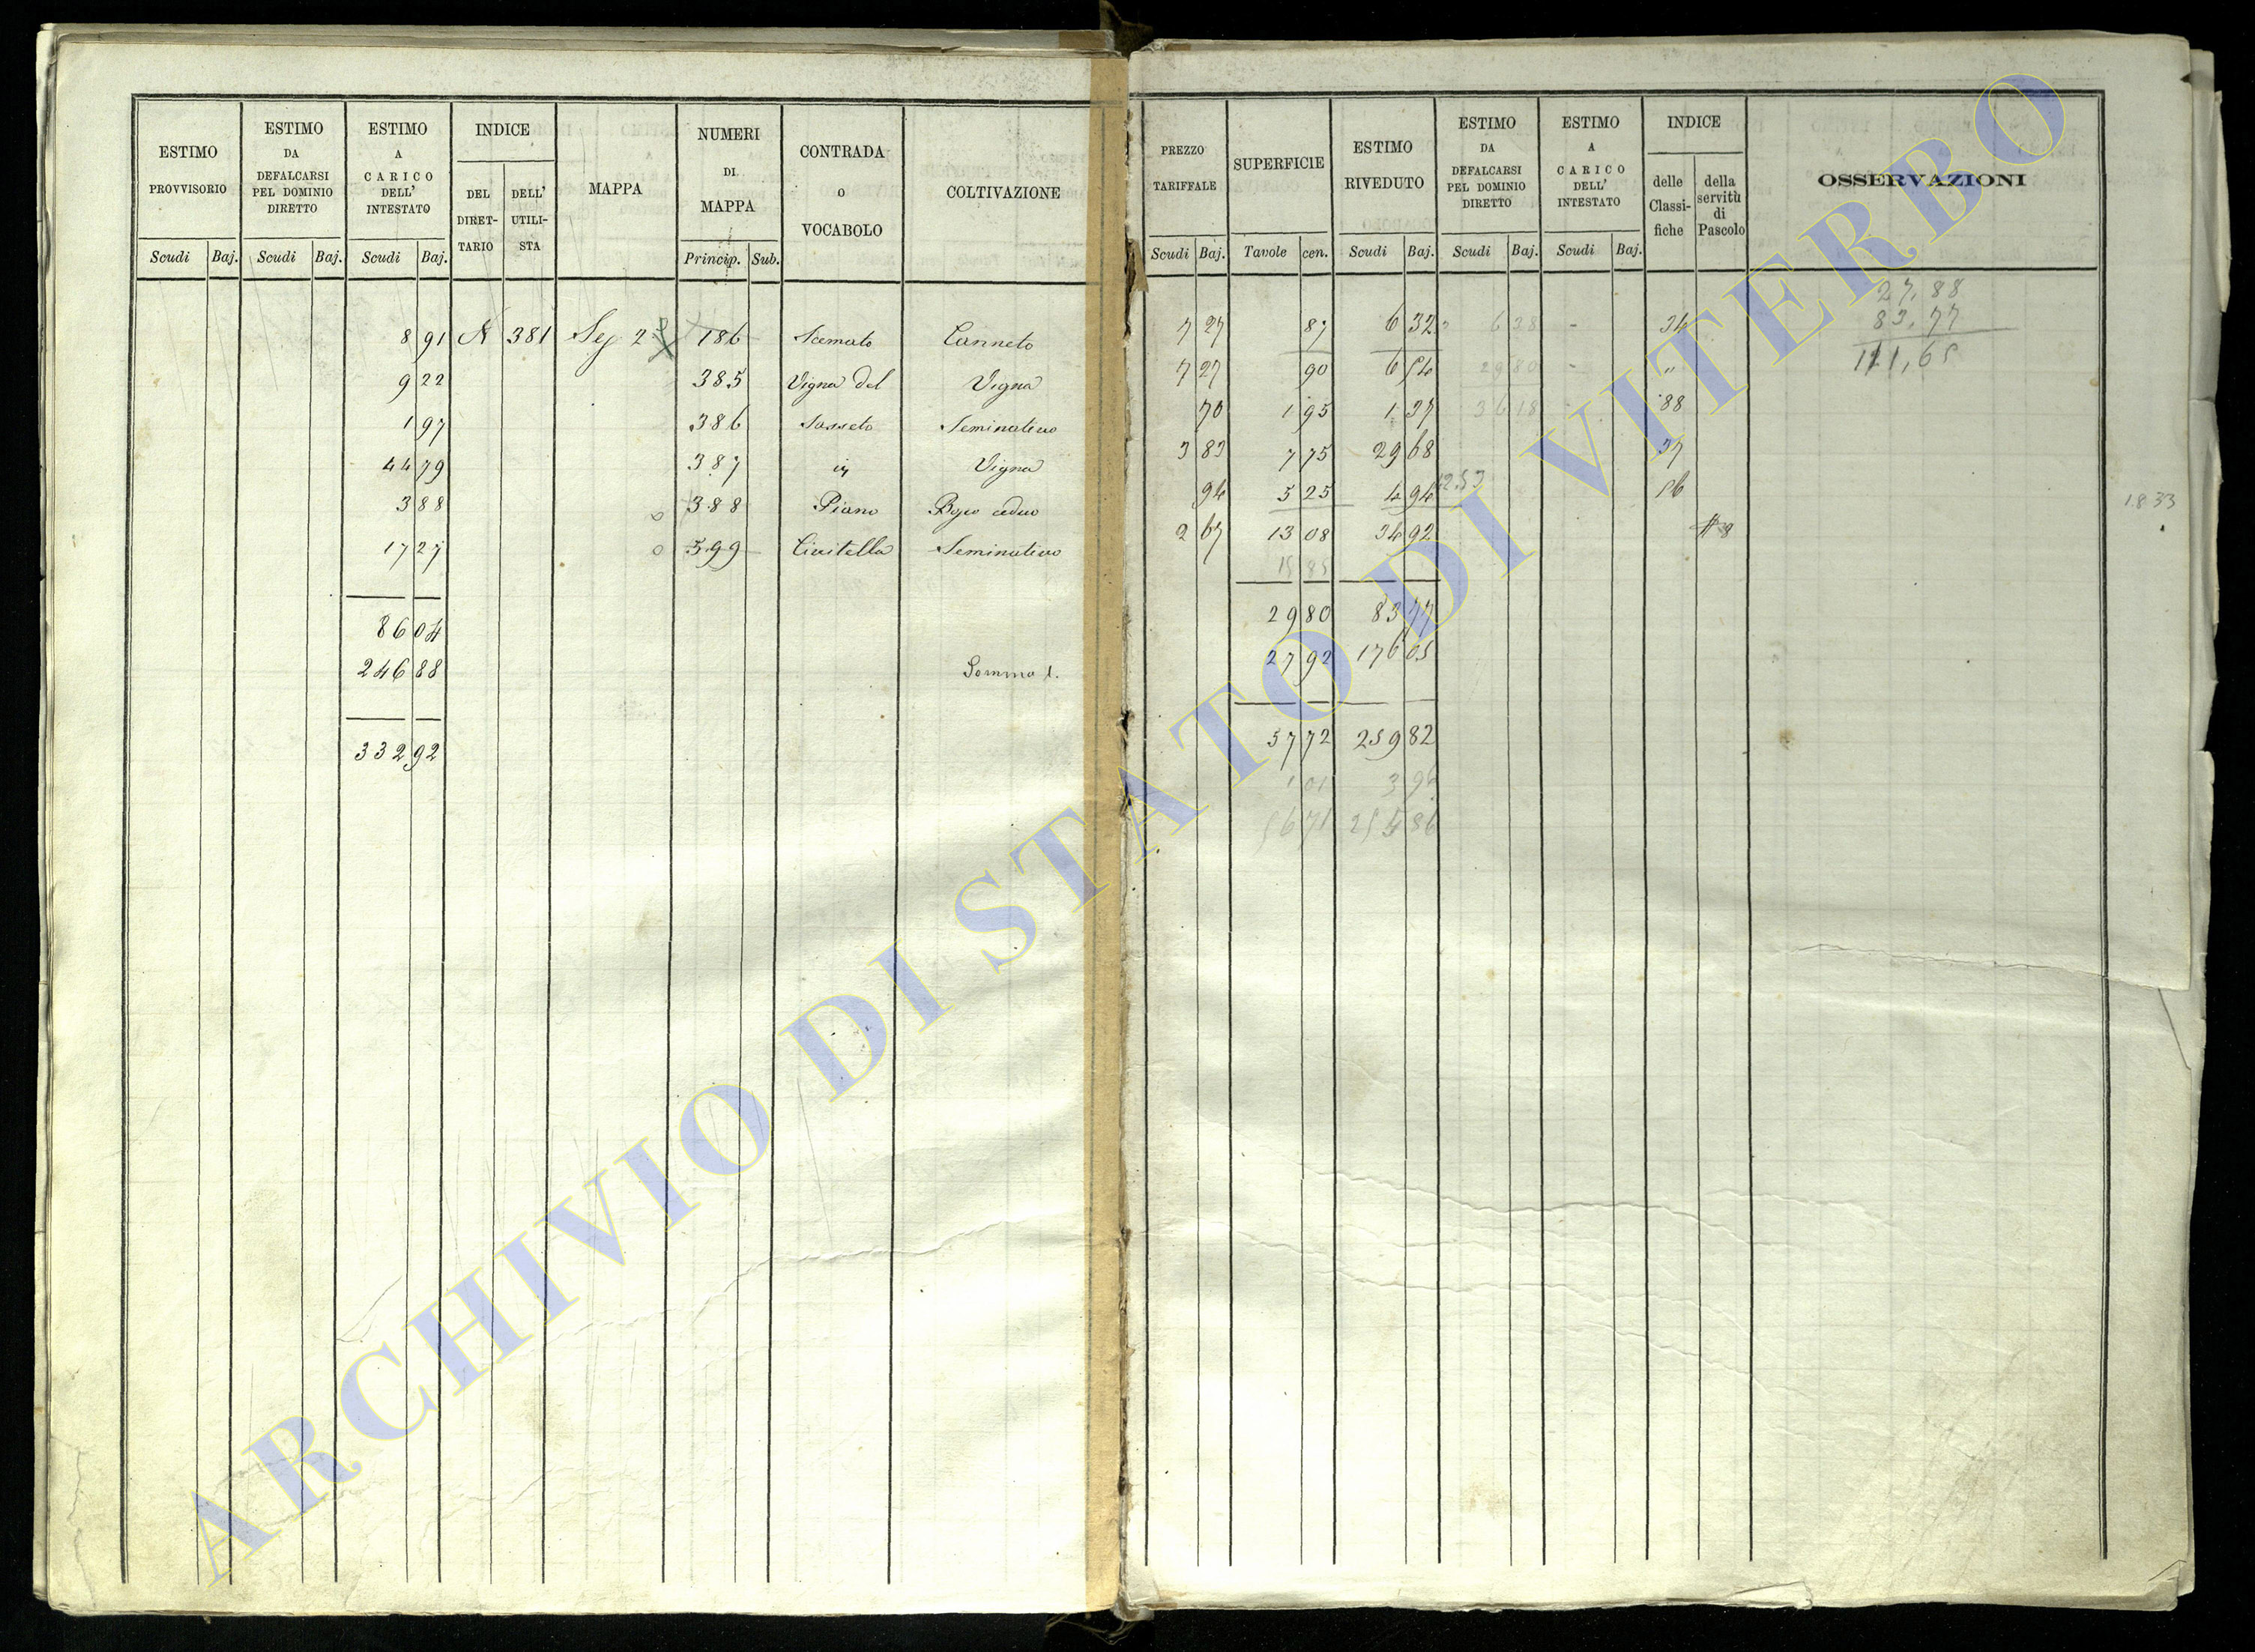 ESTIMO PROVVISORIO
Scudi Baj.
ESTIMO DA DEFALCARSI PEL DOMINIO DIRETTO
Scudi Baj.
ESTIMO A CARICO DELL' INTESTATO
Scudi Baj.
INDICE
DEL DIRET-TARIO
DELL' UTILI-STA
MAPPA
NUMERI DI MAPPA
Princip. Sub.
CONTRADA O VOCABOLO
COLTIVAZIONE
PREZZO TARIFFALE
Scudi Baj.
SUPERFICIE
Tavole cen.
ESTIMO RIVEDUTO
Scudi Baj.
ESTIMO DA DEFALCARSI PEL DOMINIO DIRETTO
Scudi Baj.
ESTIMO A CARICO DELL' INTESTATO
Scudi Baj.
INDICE
delle Classi-fiche
della servitù di Pascolo
OSSERVAZIONI
8 91 N 381 Sez 2ª 186 Scemato Canneto 7 27 87 6 32 6 38 34
9 22 385 Vigna del Vigna 7 27 90 6 54 29 80 "
1 97 386 Sasseto Seminativo 70 1 95 1 37 36 18 88
44 79 387 in Vigna 3 83 7 75 29 68 37
3 88 388 Piano Bosco ceduo 94 5 25 4 94 12.53 56
17 27 599 Civitella Seminativo 2 67 13 08 34 92 8
15 85
86 04 29 80 83 77
246 88 Somma l. 27 92 176 05
332 92 57 72 259 82
1 01 3 96
56 71 254 86
27,88
83,77
111,65
1833
ARCHIVIO DI STATO DI VITERBO